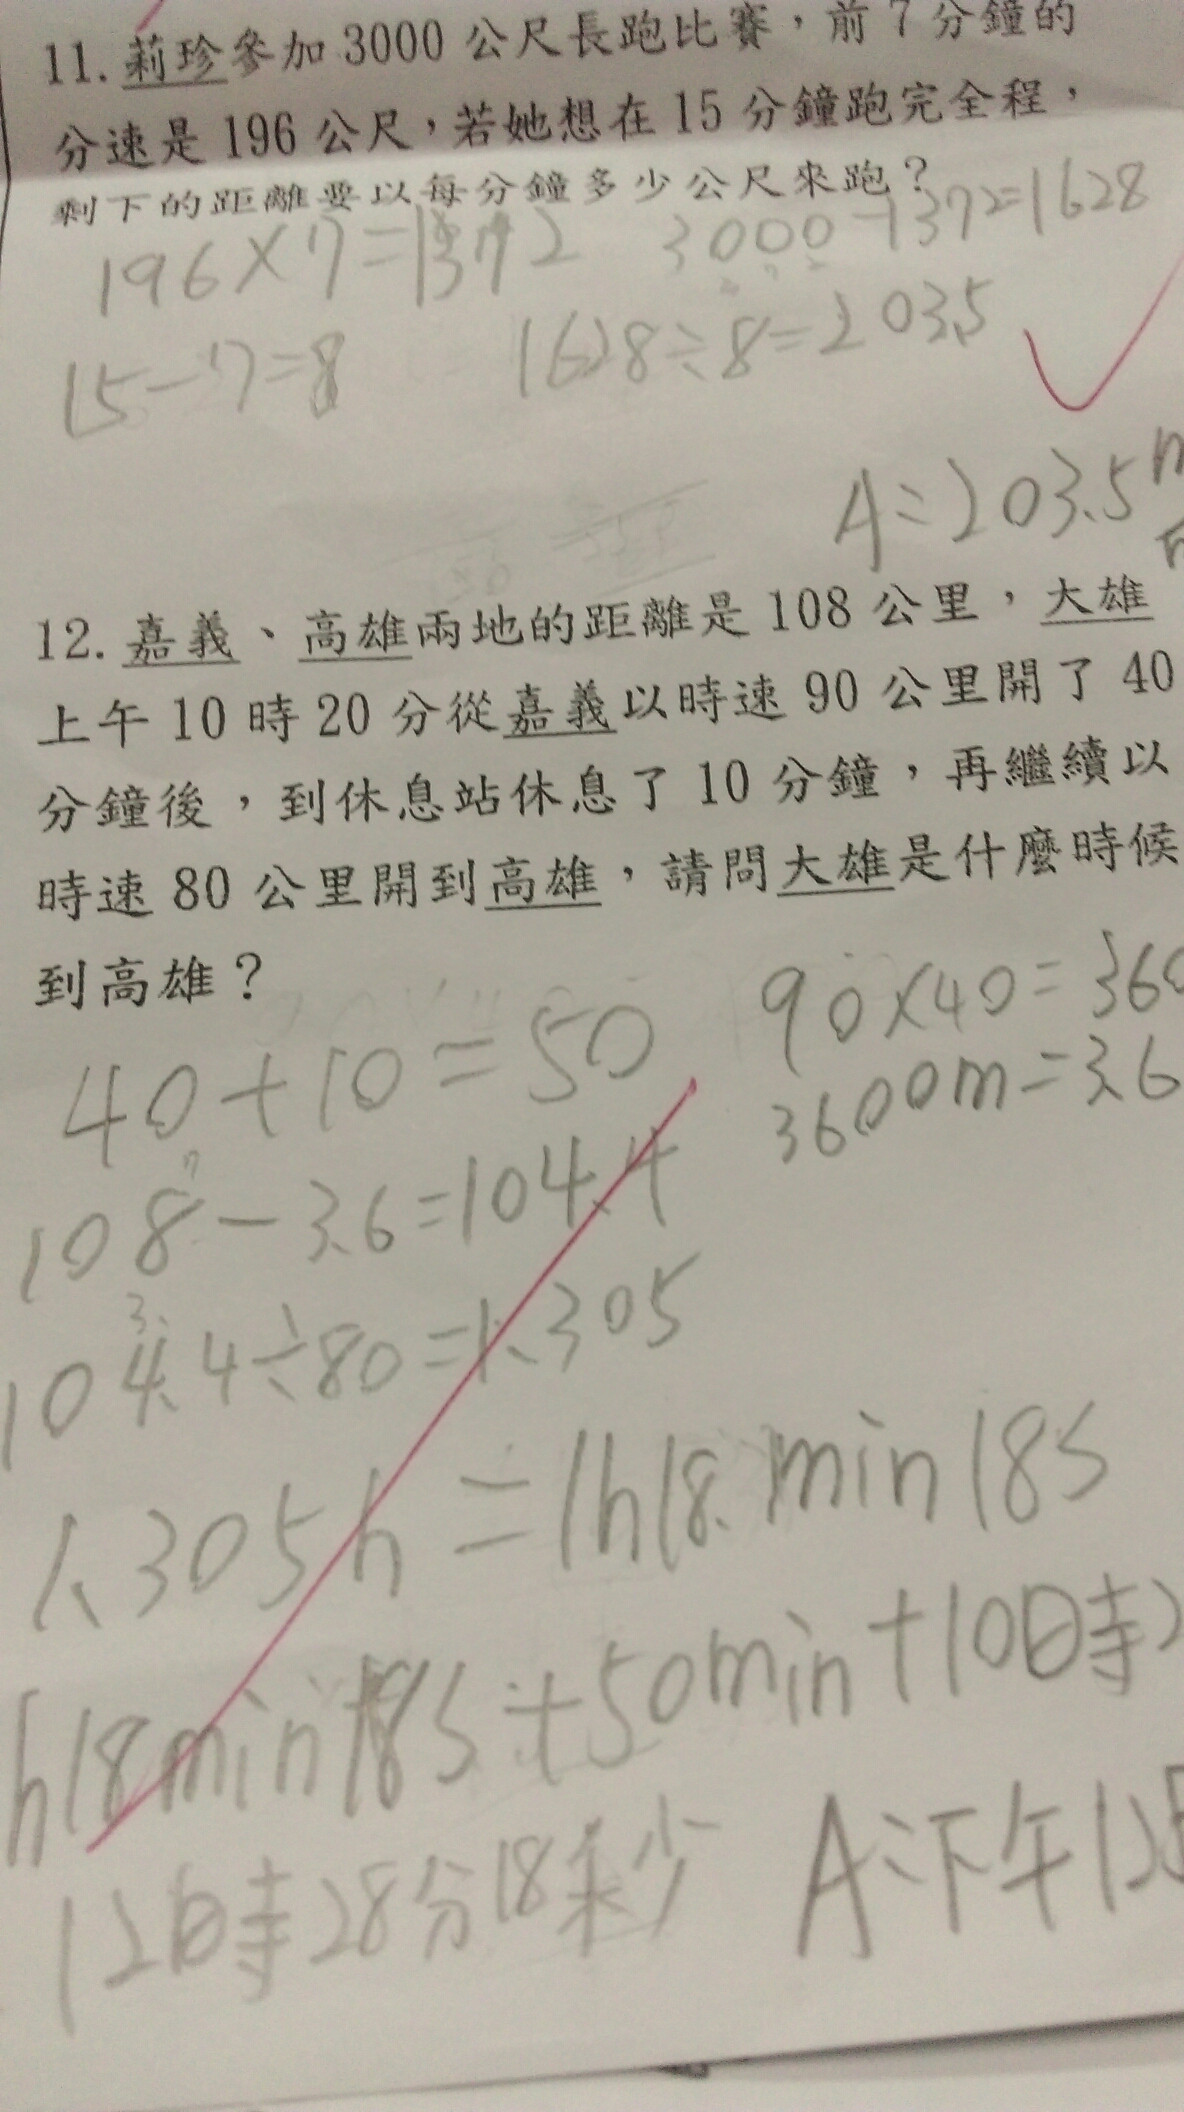 11. 莉珍參加 3000 公尺長跑比賽，前 7 分鐘的
分速是 196 公尺，若她想在 15 分鐘跑完全程，
剩下的距離要以每分鐘多少公尺來跑？
196×7=1372 3000-1372=1628
15-7=8 1628÷8=203.5
A=203.5
12. 嘉義、高雄兩地的距離是 108 公里，大雄
上午 10 時 20 分從嘉義以時速 90 公里開了 40
分鐘後，到休息站休息了 10 分鐘，再繼續以
時速 80 公里開到高雄，請問大雄是什麼時候
到高雄？
90×40=360
40+10=50
3600m=3.6
108-3.6=104.4
104.4÷80=1.305
1.305h=1h18min18s
h18min18s+50min+10時2
12時28分18秒 A:下午12